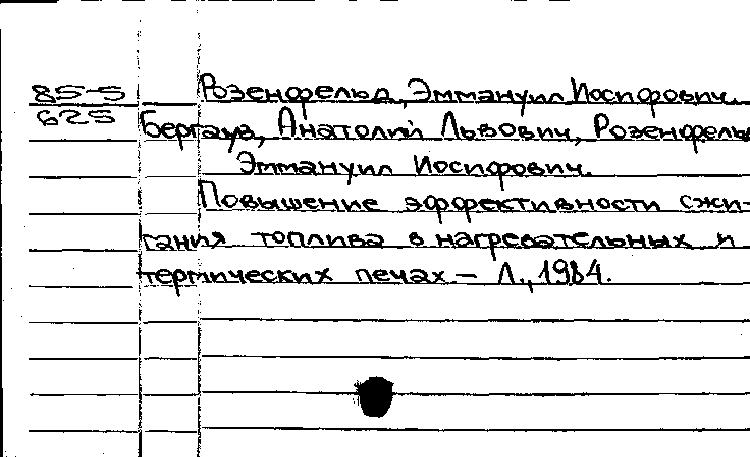 85-5 Розенфельд, Эммануил Иосифович.
625 Бергауз, Анатолий Львович, Розенфель
Эммануил Иосифович.
Повышение эффективности сжи-
гания топлива в нагревательных и
термических печах. – Л., 1984.